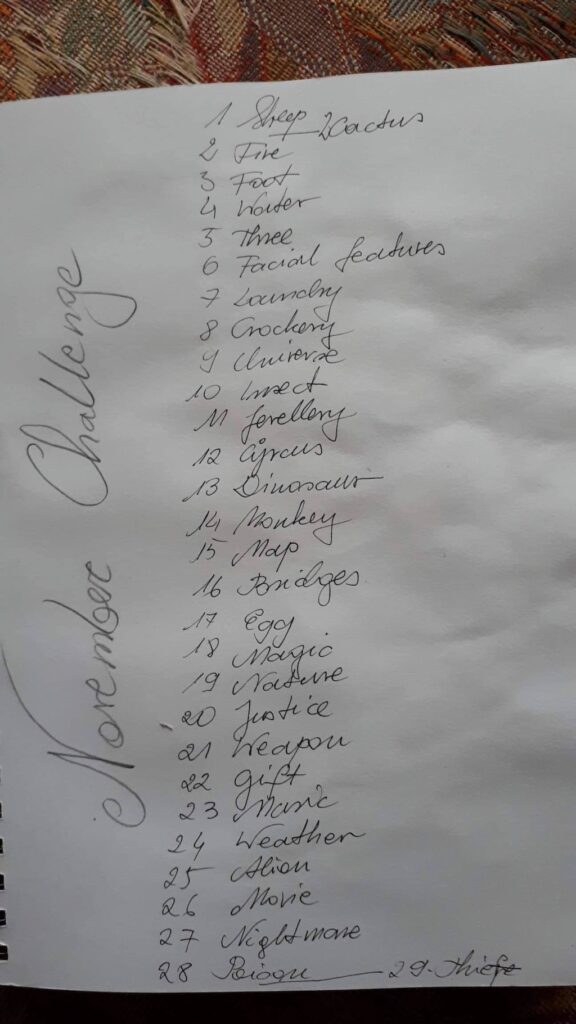 November Challenge
1 Sheep 2 Cactus
2 Fire
3 Foot
4 Water
5 Three
6 Facial features
7 Laundry
8 Crockery
9 Universe
10 Insect
11 Jewellery
12 Cyrcus
13 Dinosaur
14 Monkey
15 Map
16 Bridges
17 Egg
18 Magic
19 Nature
20 Justice
21 Weapon
22 Gift
23 Music
24 Weather
25 Alien
26 Movie
27 Nightmare
28 29. Thief